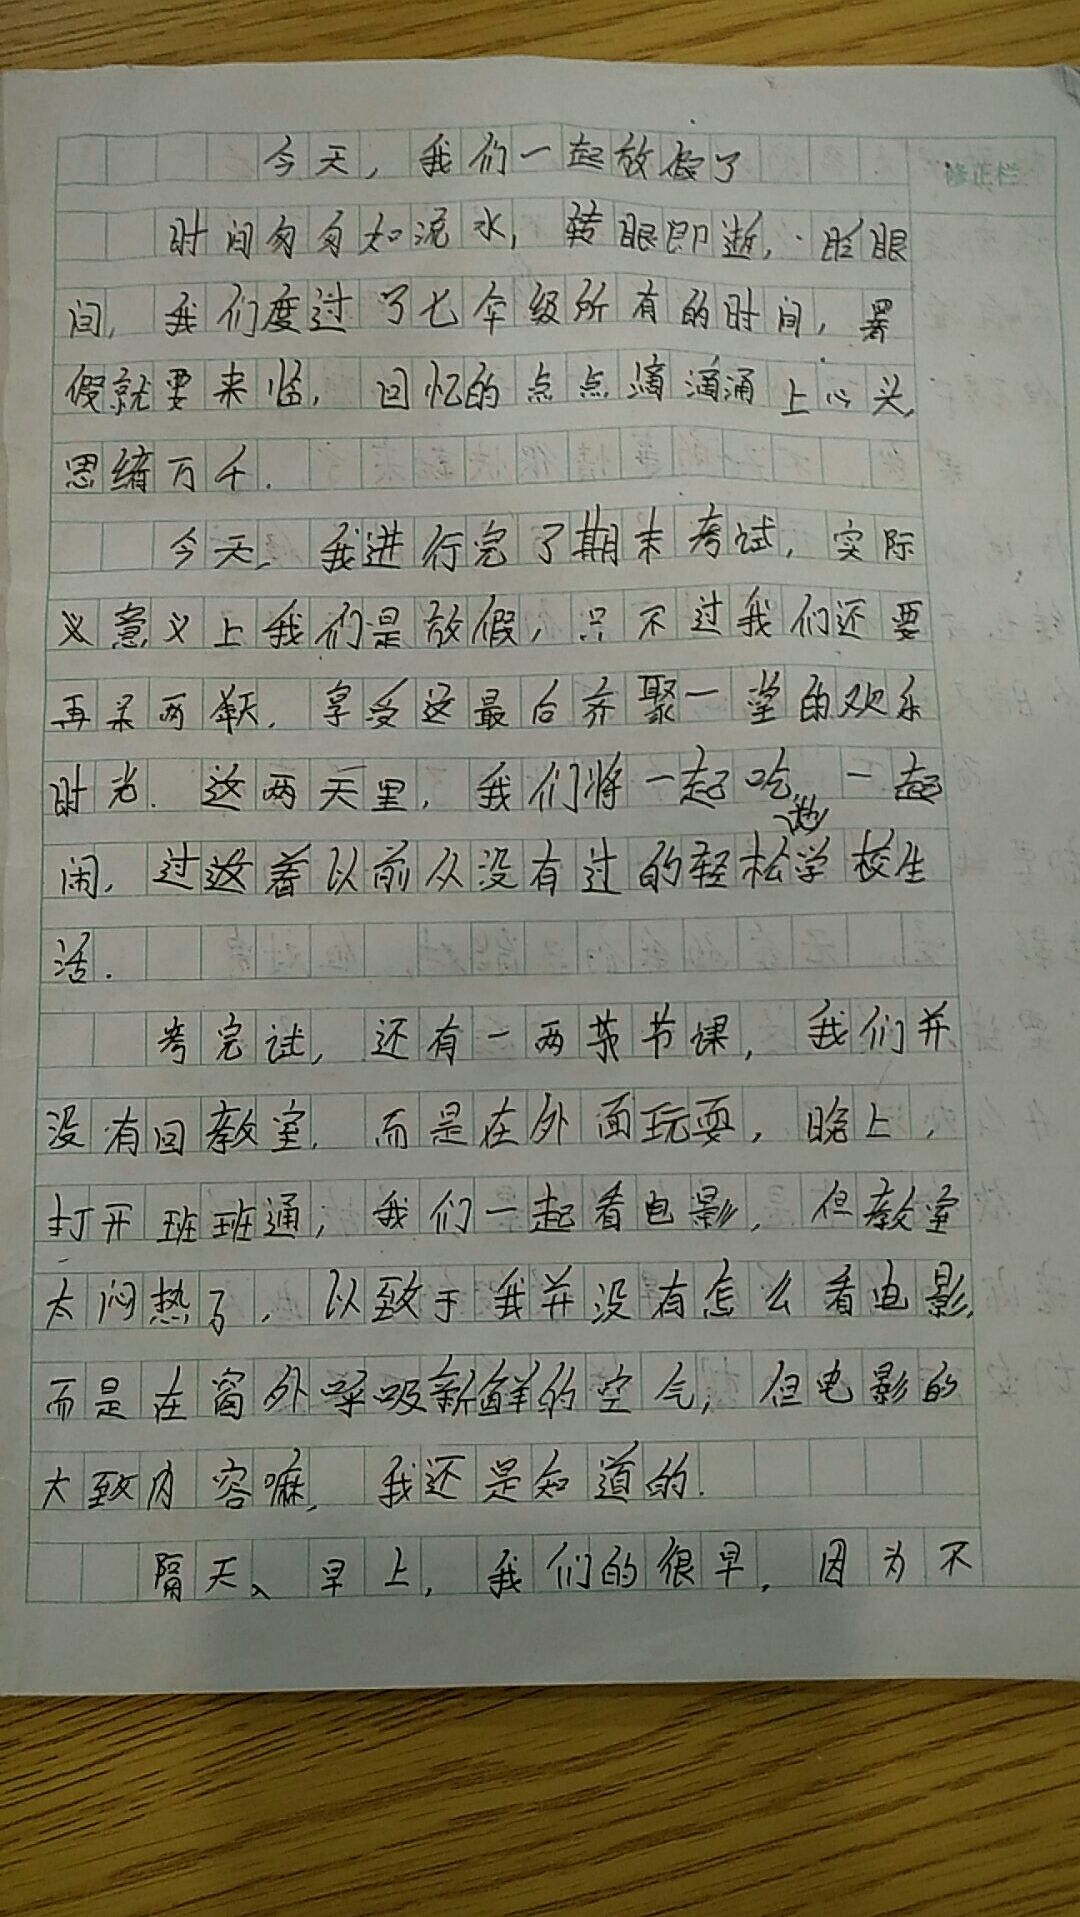 今天，我们一起放假了
修正栏
时间匆匆如流水，转眼即逝，眨眼
间，我们度过了七年级所有的时间，暑
假就要来临，回忆的点点滴滴涌上心头，
思绪万千．
今天，我进行完了期末考试，实际
义意义上我们是放假，只不过我们还要
再呆两天，享受这最后齐聚一堂的欢乐
时光．这两天里，我们将一起吃，一起
闹，过这着以前从没有过的轻松学校生
活．
考完试，还有一两节节课，我们并
没有回教室，而是在外面玩耍，晚上，
打开班班通，我们一起看电影，但教室
太闷热了，以致于我并没有怎么看电影，
而是在窗外呼吸新鲜的空气，但电影的
大致内容嘛，我还是知道的．
隔天、早上，我们的很早，因为不